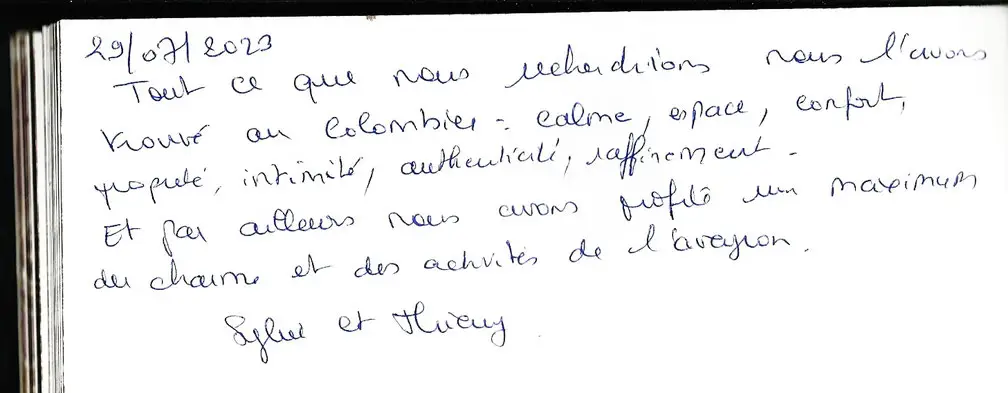 29/07/2023
Tout ce que nous recherchions nous l'avons
trouvé au Colombier : calme, espace, confort,
propreté, intimité, authenticité, raffinement.
Et par ailleurs nous avons profité un maximum
du charme et des activités de l'aveyron.
Sylvie et Thierry